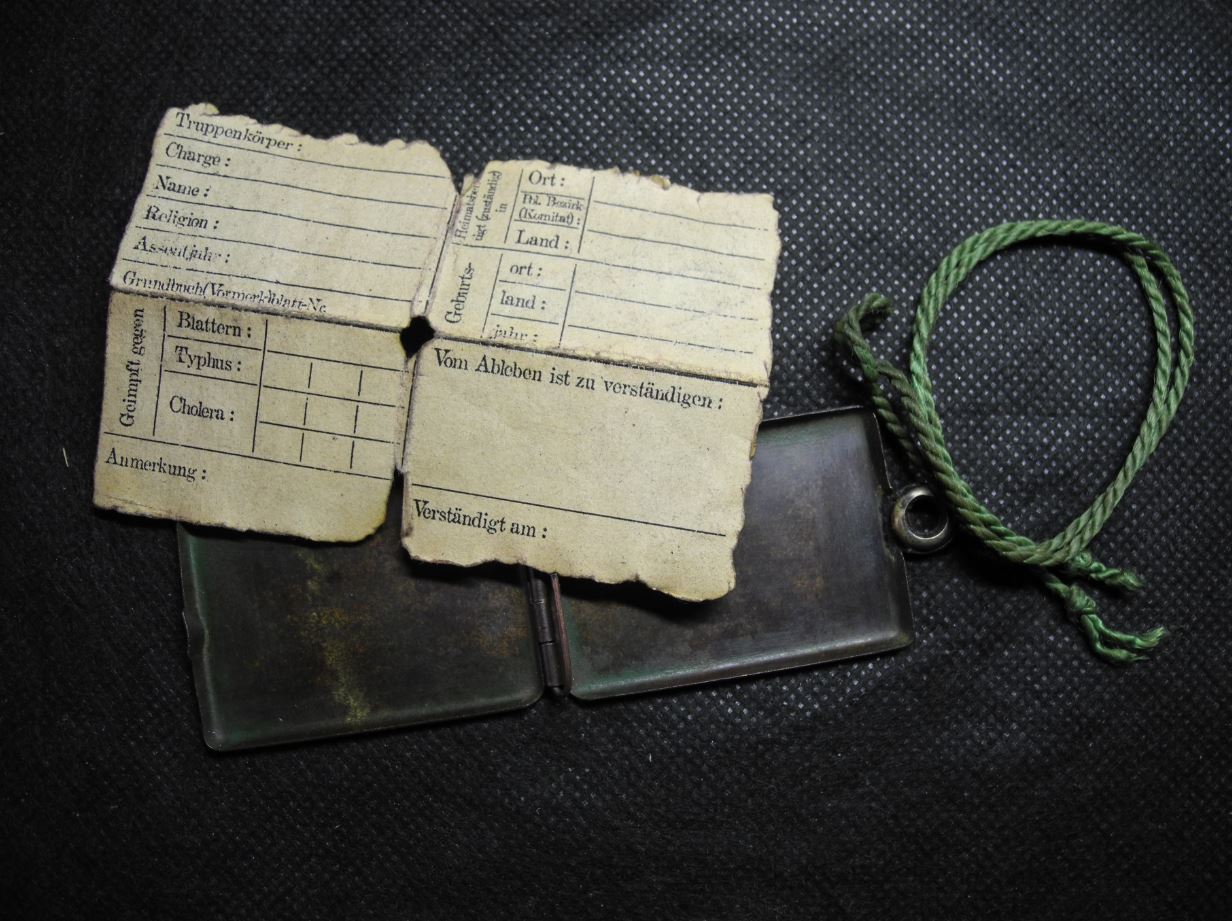 Truppenkörper :
Charge :
Name :
Religion :
Assentjahr :
Grundbuch(Vormerk)blatt-Nr.
Heimatsberechtigt (zuständig) in
Ort :
Pol. Bezirk
(Komitat) :
Land :
Geburts-
ort :
land :
jahr :
Geimpft gegen
Blattern :
Typhus :
Cholera :
Anmerkung :
Vom Ableben ist zu verständigen :
Verständigt am :